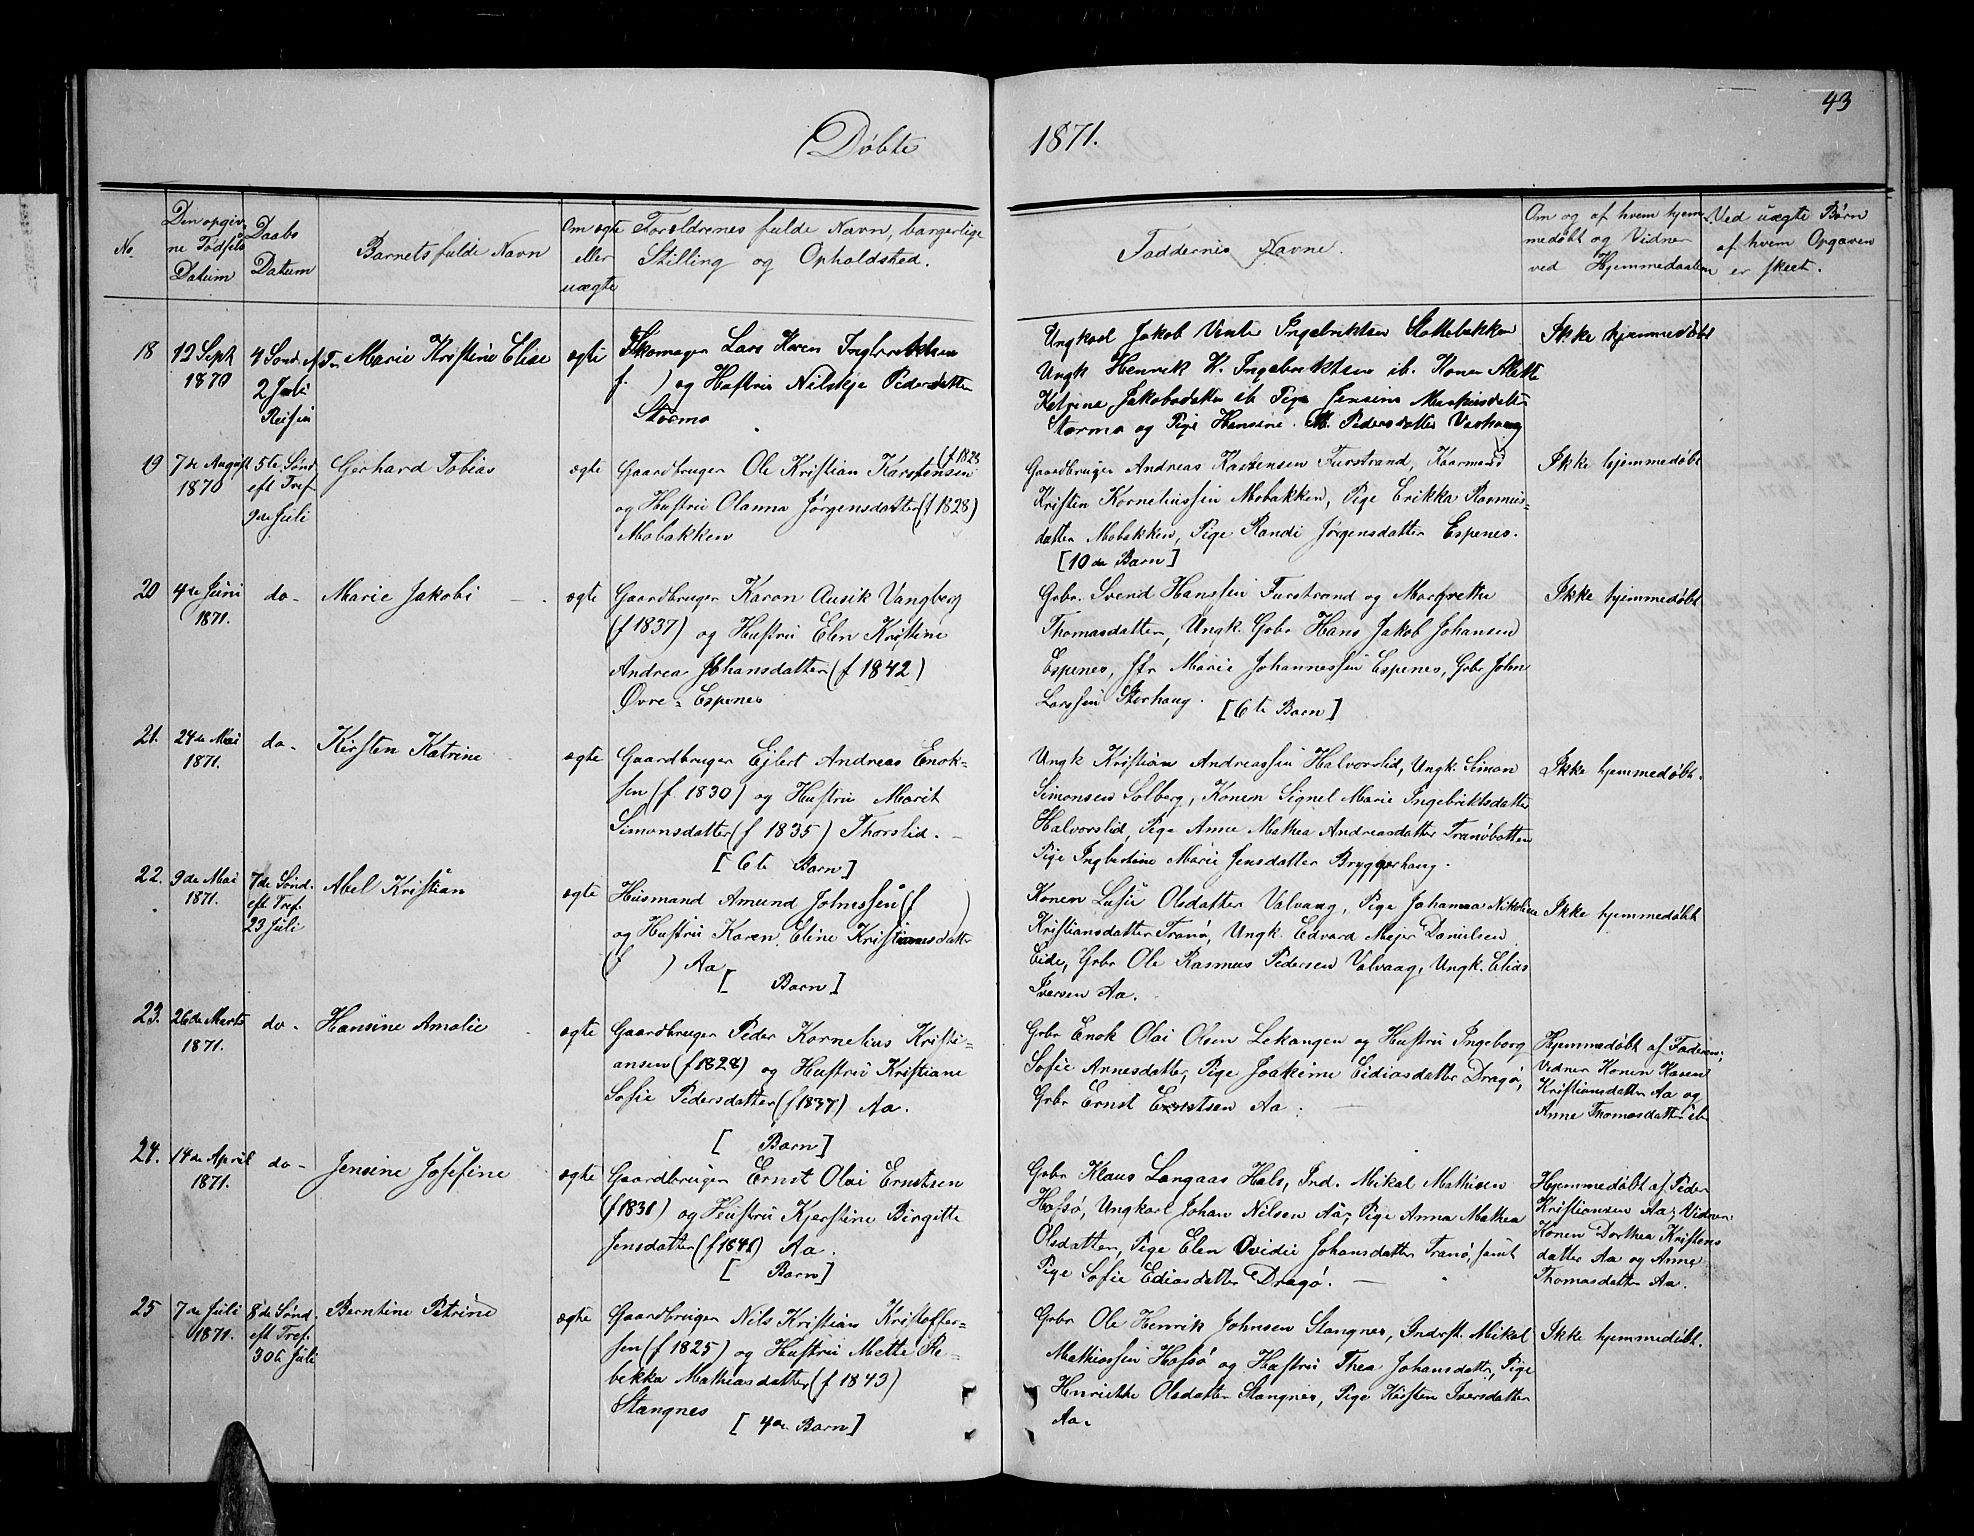 43
Døbte 1871.
No.
Den opgivne Fødsels Datum
Daabs Datum
Barnets fulde Navn
Om ægte eller uægte
Forældrenes fulde Navn, borgerlige Stilling og Opholdsted.
Faddernes Navne.
Om og af hvem hjemmedøbt og Vidner ved Hjemmedaaben
Ved uægte Børn af hvem Opgaven er skeet.
18
12 Sept 1870
4 Sønd. ef Tr. 2 Juli
Marie Kristine Elise
ægte
Skomager Lars Karen Ingebriktsen
f. ) og Hustru Nilskja Pedersdatter
Stormo
Ungkarl Jakob Vinte Ingebriktsen Slottebakken
Ungk Henrik K. Ingebriktsen ib. Konen Alette
Katrina Jakobsdatter ib Pige Jensine Markusdatter
Stormo og Pige Hansine M. Pedersdatter
Ikke hjemmedøbt
19
7de August 1870
5te Sønd eft Tref 9de Juli
Gerhard Tobias
ægte
Gaardbruger Ole Kristian Karstensen (f 1828
og Hustru Olanna Jørgensdatter (f 1828)
Mobakken
Gaardbruger Andreas Karstensen Furstrand, Kaarmand
Kristen Korneliussen Mobakken, Pige Erikka Rasmus-
datter Mobakken, Pige Randi Jørgensdatter Espenes.
[10de Barn]
Ikke hjemmedøbt
20
4de Juni 1871.
do-
Marie Jakobi
ægte
Gaardbruger Karon Ausik Vangberg
(f 1837) og Hustru Elen Kristine
Andrea Johansdatter (f 1842)
Øvre-Espenes
Gbr. Svend Hanssen Furstrand og Margrethe
Thomasdatter, Ungk. Gbr Hans Jakob Johansen
Espenes, Marie Johannessen Espenes, Gbr John
Larssen Storhaug.
[6te Barn]
Ikke hjemmedøbt
21.
24de Mai 1871.
do-
Kirsten Katrine
ægte
Gaardbruger Ejlert Andreas Enok-
sen (f. 1830) og Hustru Marit
Simonsdatter (f 1835) Thorslid. -
[6te Barn]
Ungk Kristian Andreassen Halvorslid, Ungk. Simon
Simonsen Solberg, Konen Signel Marie Ingebriktsdatter
Halvorslid, Pige Anne Mathea Andreasdatter Tranøbotten
Pige Ingbertine Marie Jensdatter Bryggerhaug.
Ikke hjemmedøbt.
22.
9de Mai 1871.
7de Sønd. eft Tref. 23 Juli
Abel Kristian
ægte
Husmand Amund Johnessen (f )
og Hustru Karen Eline Kristiansdatter
(f ) Aa
[ Barn]
Konen Lusie Olsdatter Valvaag, Pige Johanna Nikoline
Kristiansdatter Tranø, Ungk. Edvard Mejer Danielsen
Eide, Gbr Ole Rasmus Pedersen Valvaag, Ungk. Elias
Iversen Aa.
Ikke hjemmedøbt
23.
26de Marts 1871.
do-
Hansine Amalie
ægte
Gaardbruger Peder Kornelius Kristi-
ansen (f 1828) og Hustru Kristiane
Sofie Pedersdatter (f 1837) Aa.
[ Barn]
Gbr Enok Olai Olsen Lekangen og Hustru Ingeborg
Sofie Arnesdatter, Pige Joakime Eidiasdatter Dragø,
Gbr Ernst Ernstsen Aa.
Hjemmedøbt af Faderen;
Vidner Konen Karen
Kristiansdatter Aa og
Anne Thomasdatter ib
24.
14de April 1871.
do-
Jensine Josefine
ægte
Gaardbruger Ernst Olai Ernstsen
(f 1831) og Hustru Kjerstine Birgitte
Jensdatter (f 1841) Aa.
[ Barn]
Gbr Klaus Langaas Hals, Ind. Mikal Mathisen
Hofsø, Ungkarl Johan Nilsen Aa, Pige Anna Mathea
Olsdatter, Pige Elen Ovidie Johansdatter Tranø, samt
Pige Sofie Ediasdatter Dragø.
Hjemmedøbt af Peder
Kristiansen Aa; Vidner
Konen Dorthea Kristens
datter Aa og Anne
Thomasdatter Aa.
25
7de Juli 1871.
8de Sønd. eft Tref. 30te Juli
Berntine Petrine
ægte
Gaardbruger Nils Kristian Kristoffer-
sen (f 1825) og Hustru Mette Re-
bekka Mathiasdatter (f 1843)
Stangnes
[4de Barn]
Gbr Ole Henrik Johnsen Stangnes, Inderst. Mikal
Mathiassen Hofsø og Hustru Thea Johansdatter, Pige
Henriette Olsdatter Stangnes, Pige Kirsten Iversdatter
Aa.
Ikke hjemmedøbt.